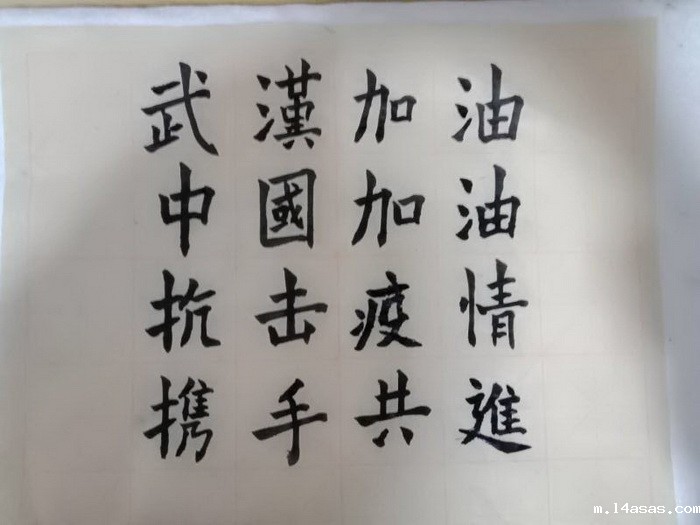 武漢加油
中國加油
抗击疫情
携手共進
m.14asas.com